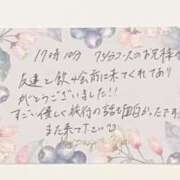 17時10分 75分コースのお兄様♡
友達と飲み会前に来てくれてあり
がとうございました!!
すごい優しく旅行の話も面白かったです。
また来て下さい